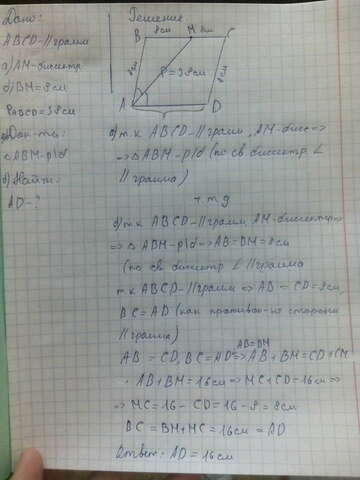 Дано:
ABCD-llграмм
а) AM-биссектр
б) BM=8см
PABCD=38см
Док-ть:
△ABM-р/б
б) Найти:
AD-?
Решение
B 8см M 8см C
8см P=38см 8см
A D
а) т к ABCD-llграмм, AM-бисс =>
=> △ABM-р/б (по св биссектр ∠
llграмма)
чтд
б) т к ABCD-llграмм, AM-биссектр=>
=> △ABM-р/б => AB=BM=8см
(по св биссектр ∠ llграмма
т к ABCD-llграмм => AB = CD=8см,
BC=AD (как противоп-ие стороны
llграмма)
AB=BM
AB = CD, BC=AD => AB+BM=CD+CM
AB+BM=16см => MC+CD=16см =>
=> MC=16-CD=16-8=8см
BC=BM+MC=16см=AD
Ответ: AD=16см